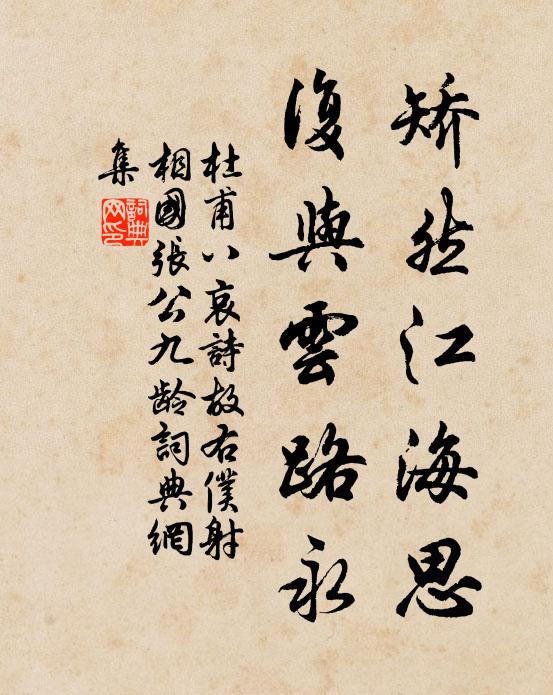 矯然江海思
復與雲路永
杜甫八哀詩故右僕射
相國張公九齡詞典網
集
詞典
网印